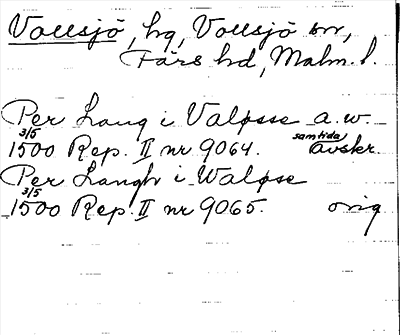 Vollsjö, hg, Vollsjö sn,
Färs hd, Malm. l.
Per Lang i Valøsse a. w.
3/5 samtida
1500 Rep. II nr 9064. avskr.
Per Langh i Waløse
3/5
1500 Rep. II nr 9065. orig